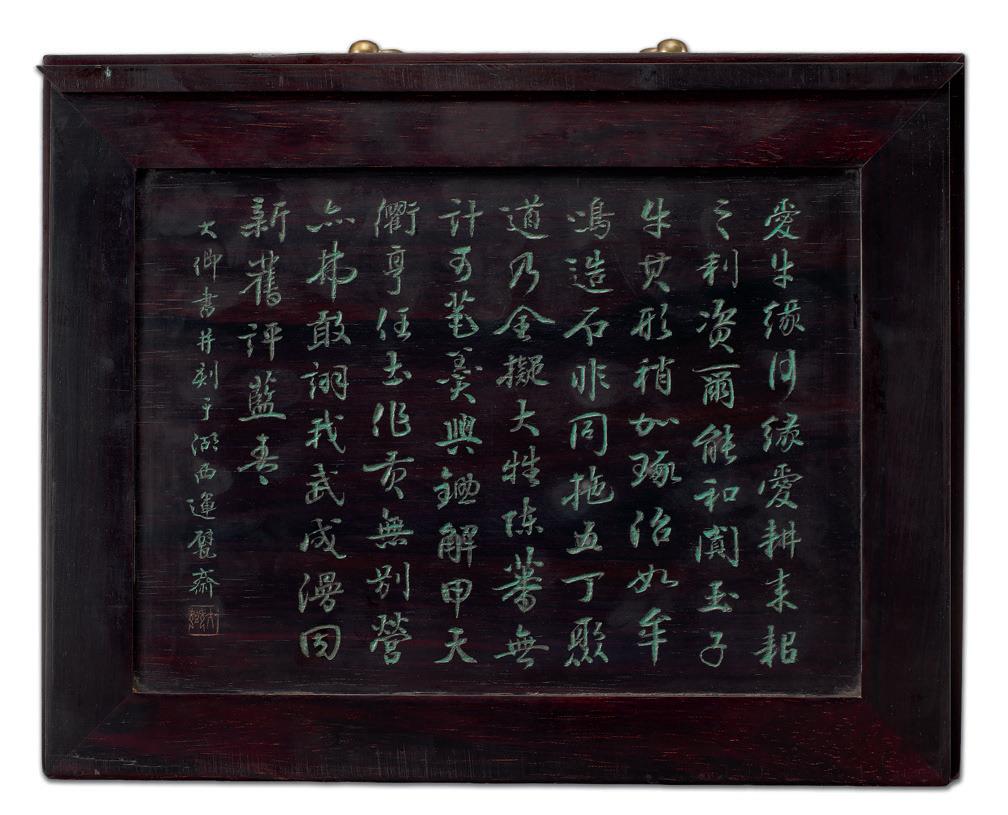 愛牛緣何緣愛耕耒耜
之利資爾能和闐玉子
牛其形稍加琢治如牟
鳴造石非同拖五丁聚
道乃全擬大牲陳蕃無
計可芼羹興鋤解甲天
衢亨任土作貢無別營
亦弗敢詡我武成漫因
新舊評藍青
大卿書并刻于湖西運甓齋